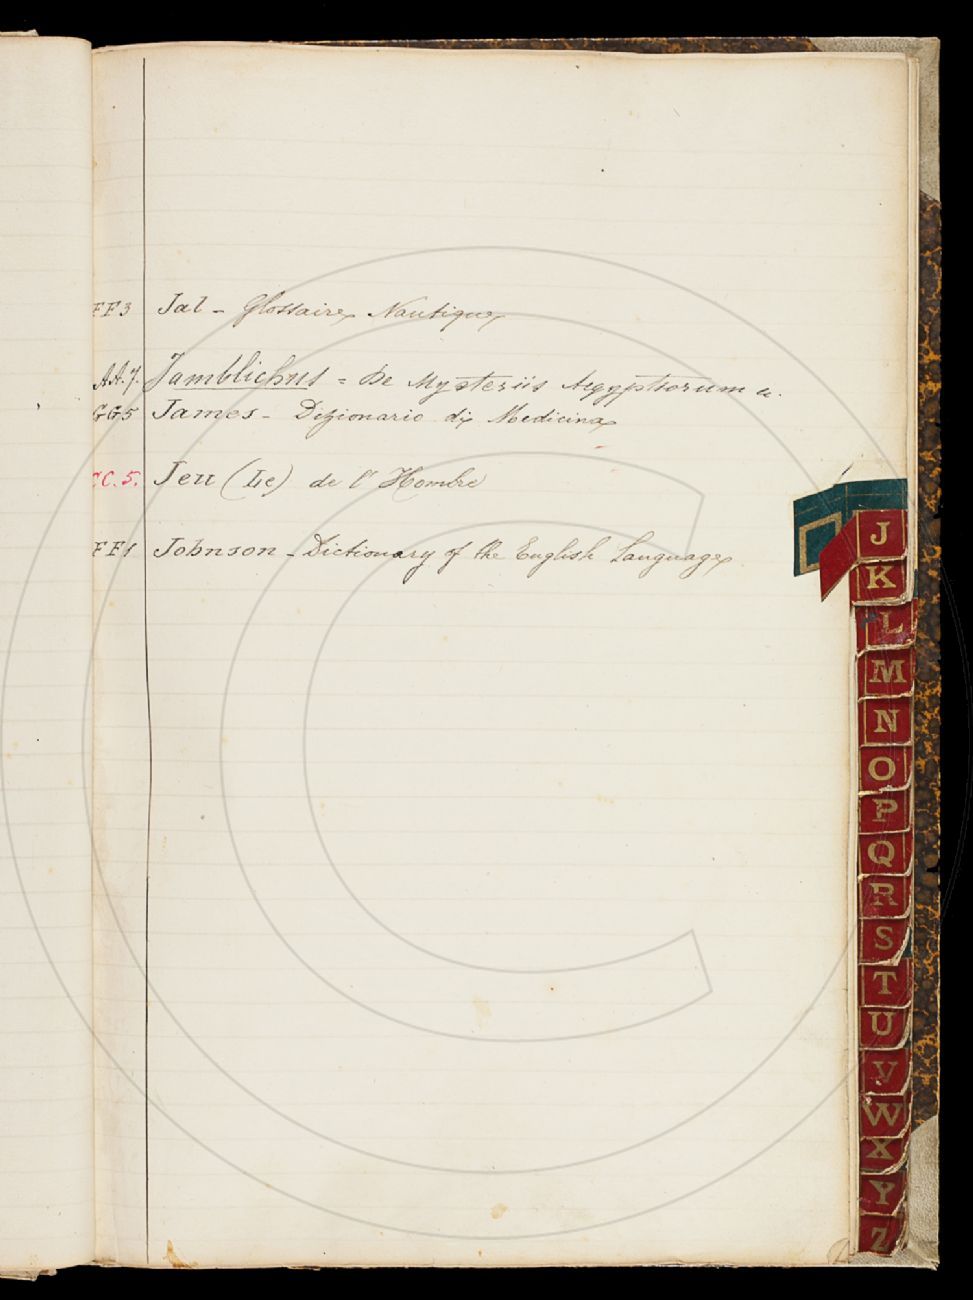 FF3 Jal - Glossaire Nautique
AA.7. Jamblichus = De Mysteriis Aegyptiorum
GG5 James - Dizionario di Medicina
CC.5. Jeu (Le) de l'Hombre
FF1 Johnson - Dictionary of the English Language
J
K
L
M
N
O
P
Q
R
S
T
U
V
W
X
Y
Z